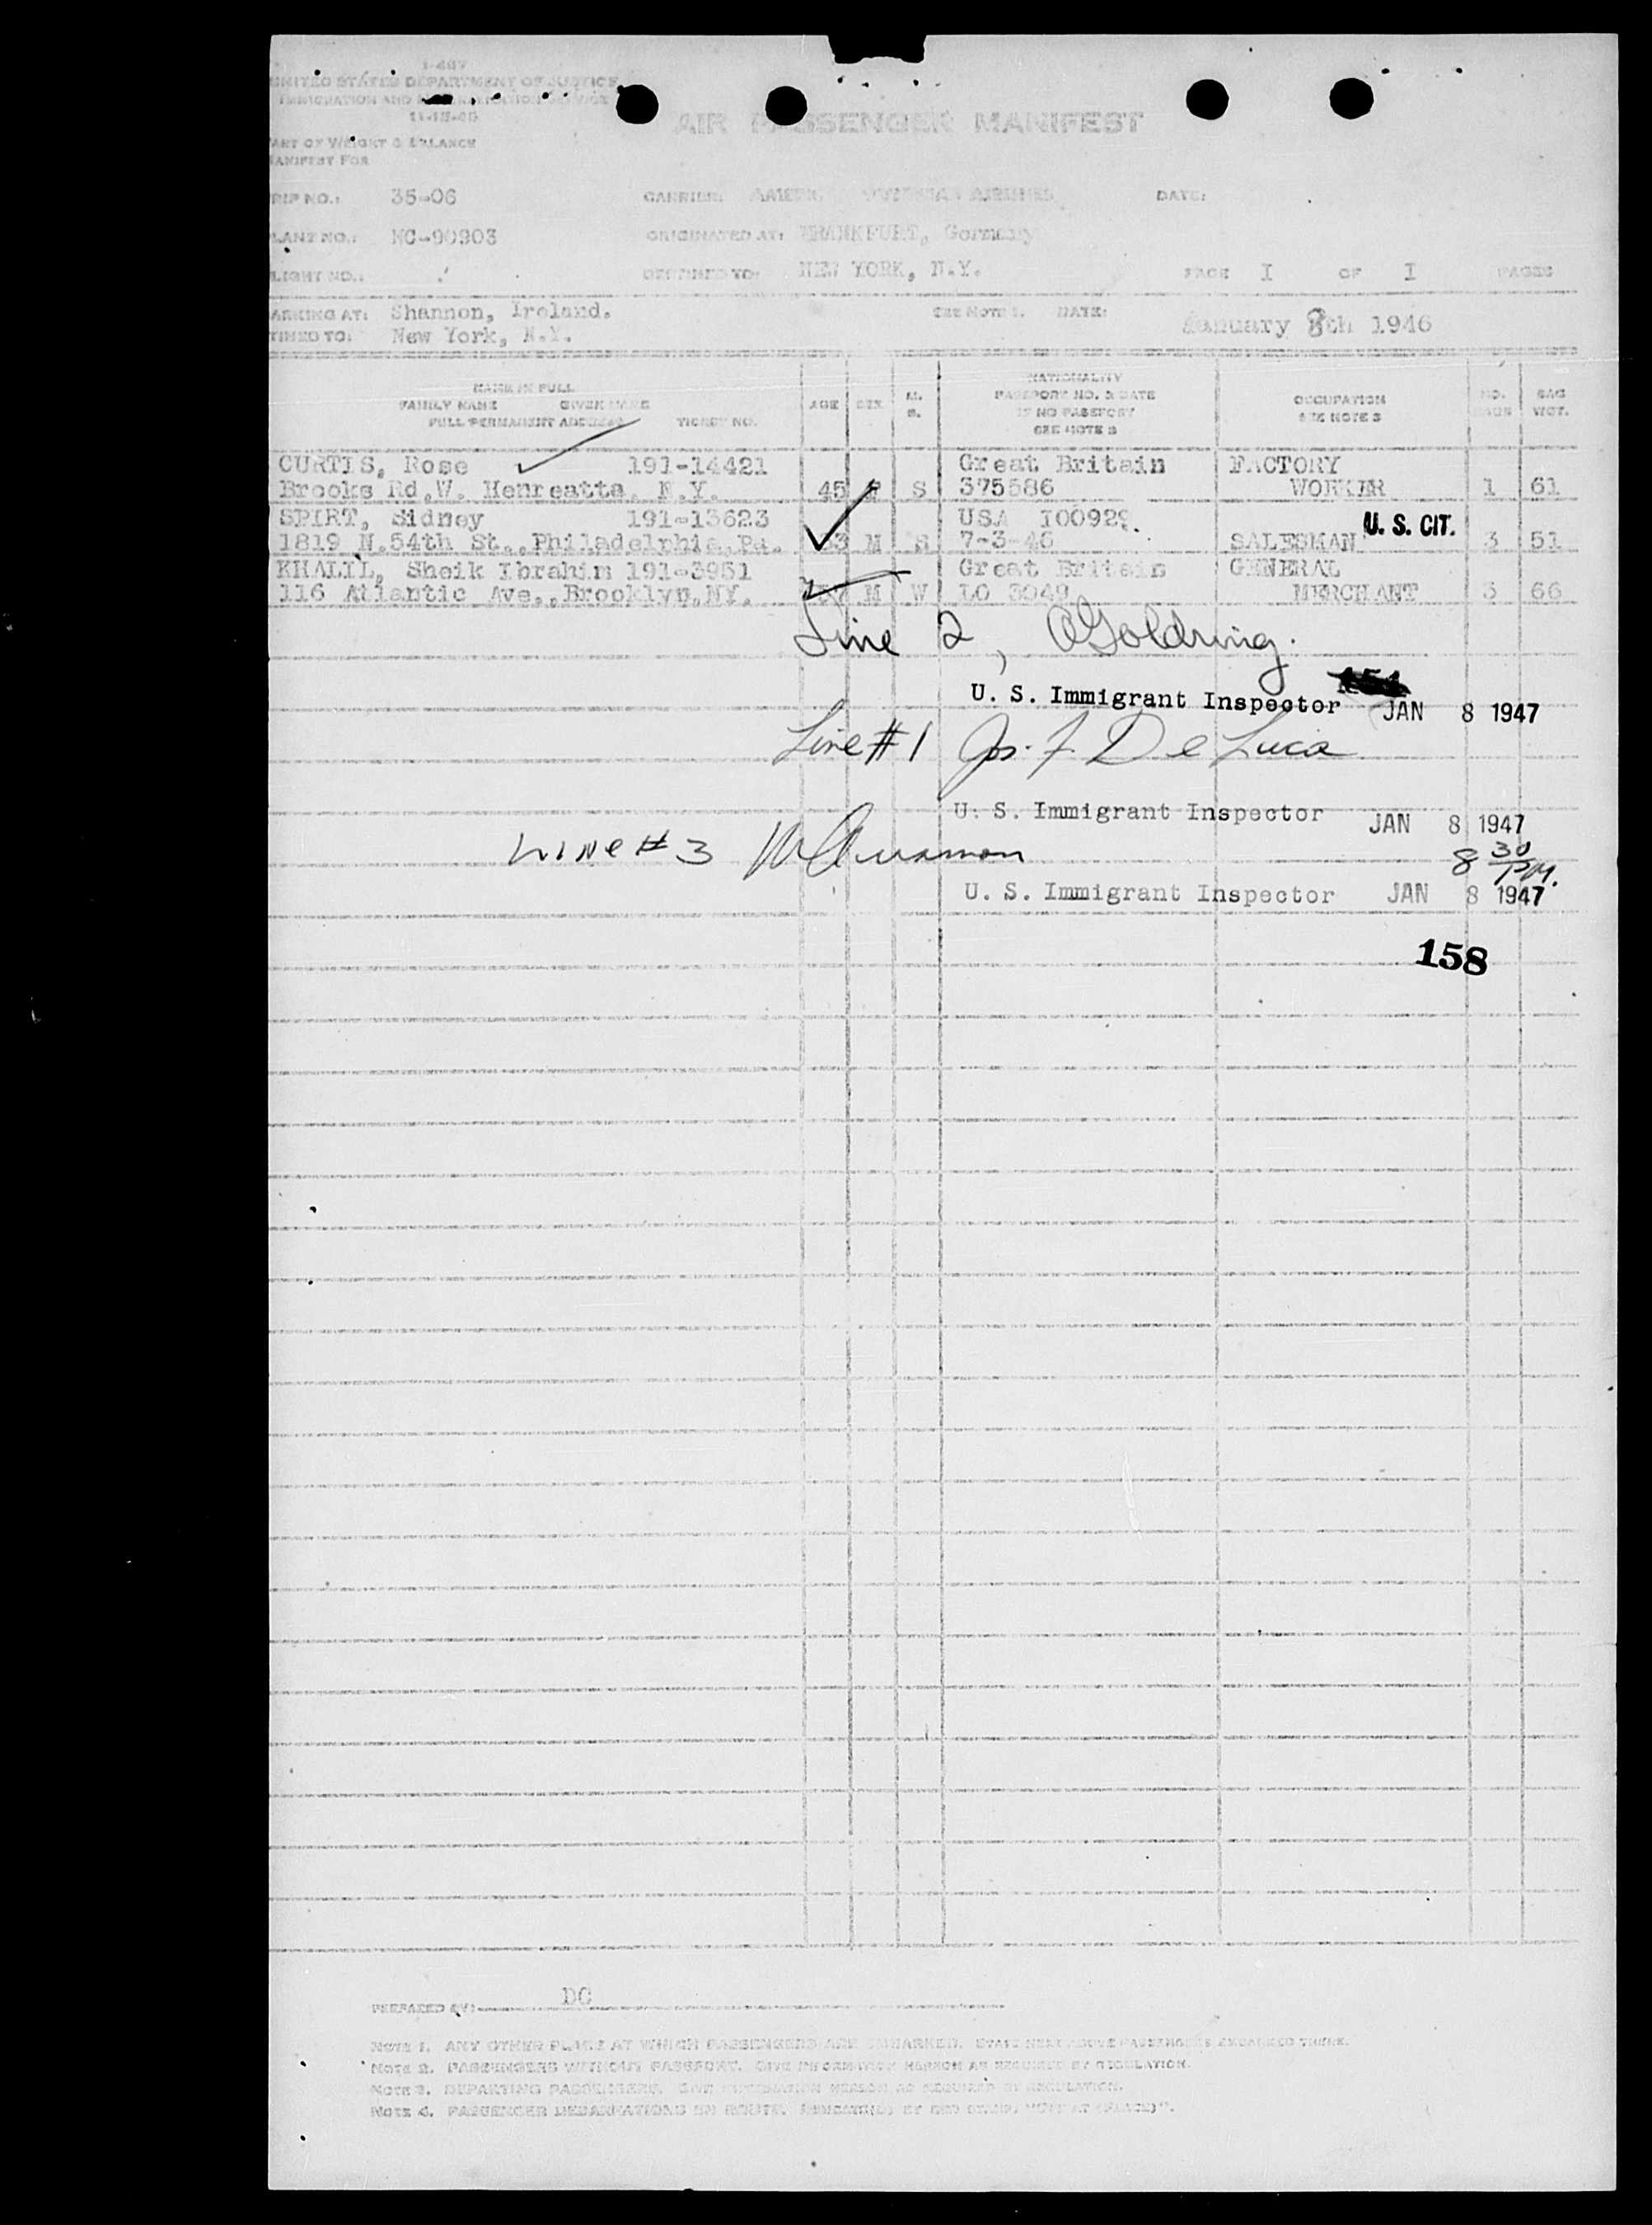 I-467
UNITED STATES DEPARTMENT OF JUSTICE
IMMIGRATION AND SERVICE
AIR PASSENGER MANIFEST
ART OF WEIGHT & BALANCE
ANIFEST FOR
RIP NO.: 35-06 CARRIER: AIRLINES DATE:
LANE NO.: NC-90903 ORIGINATED AT: FRANKFURT, Germany
LIGHT NO.: DESTINED TO: NEW YORK, N.Y. PAGE I OF I PAGES
ARKING AT: Shannon, Ireland. SEE NOTE 1. DATE: January 8th 1946
TINED TO: New York, N.Y.
NAME IN FULL
FAMILY NAME GIVEN NAME
FULL PERMANENT ADDRESS TICKET NO.
AGE SEX M. S.
NATIONALITY
PASSPORT NO. & DATE
IF NO PASSPORT
SEE NOTE 2
OCCUPATION
SEE NOTE 3
NO. BAGS
BAG WGT.
CURTIS, Rose 191-14421 Great Britain FACTORY
Brooks Rd.W. Henreatta, N.Y. 45 F S 375586 WORKER 1 61
SPIRT, Sidney 191-13623 USA 100929. U. S. CIT.
1819 N.54th St.,Philadelphia,Pa. 33 M S 7-3-46 SALESMAN 3 51
KHALIL, Sheik Ibrahim 191-3951 Great Britain GENERAL
116 Atlantic Ave.,Brooklyn,NY. M W LO 3049 MERCHANT 3 66
Line 2, Goldring.
U. S. Immigrant Inspector JAN 8 1947
Line #1 Jos. F. De Luca
U. S. Immigrant Inspector JAN 8 1947
Line #3
8 30 PM.
U. S. Immigrant Inspector JAN 8 1947
158
PREPARED BY: DC
NOTE 1. ANY OTHER PLACE AT WHICH PASSENGERS ARE EMBARKED. STATE NEXT ABOVE PASSENGERS EMBARKED THERE.
NOTE 2. PASSENGERS WITHOUT PASSPORT. GIVE INFORMATION HEREON AS REQUIRED BY REGULATION.
NOTE 3. DEPARTING PASSENGERS. GIVE INFORMATION HEREON AS REQUIRED BY REGULATION.
NOTE 4. PASSENGER DEBARKATIONS EN ROUTE.